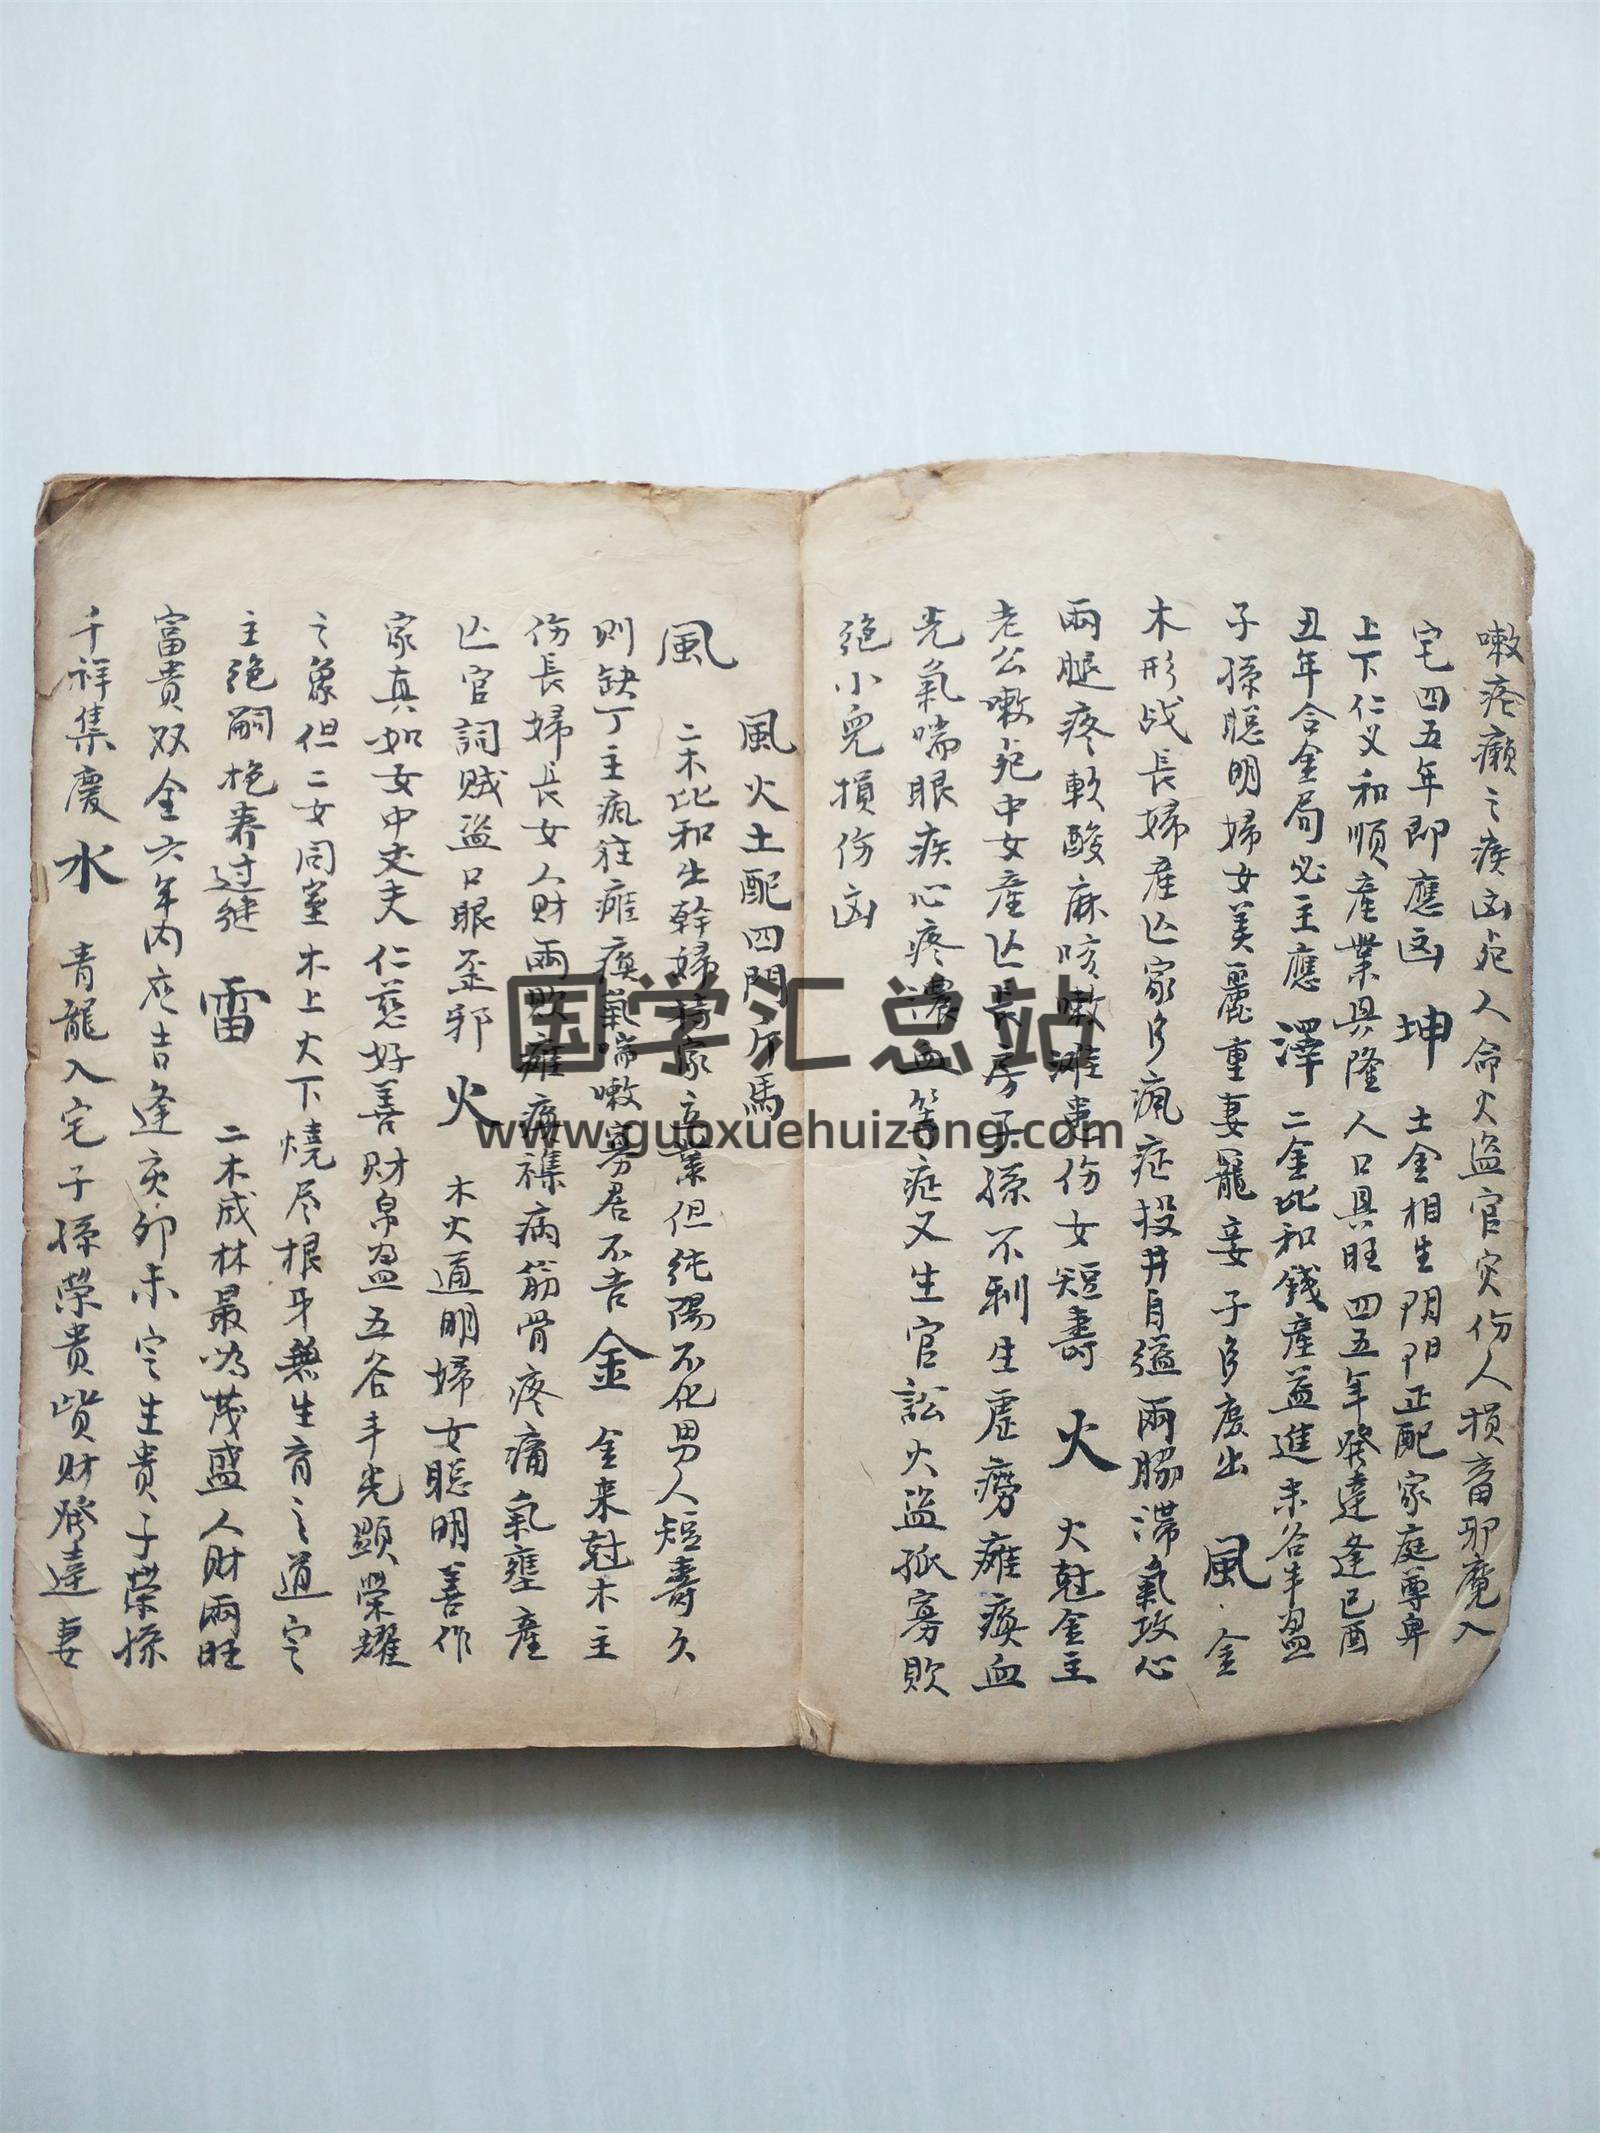 嗽疮癩之疾凶死人命火盜官灾伤人損畜邪魔入
宅四五年即應凶 坤 土金相生阴阳正配家庭尊卑
上下仁义和順產業具隆人口具旺四五年發達逢巳酉
丑年合金局必主應 澤 二金比和錢產益進未谷丰盈
子孫聪明婦女美麗重妻罷妾子多庶出 風 金
木形战長婦產亡家多瘋症投井自缢兩脇滞氣攻心
兩腿疼軟酸麻咳嗽瘫患伤女短壽 火 火尅金主
老公嗽死中女產亡長房子孫不利生虚痨瘫瘓血
光氣喘眼疾心疼濃血等症又生官訟火盜孤寡敗
绝小兒損伤凶
風火土配四門斤馬
風 二木比和生幹婦持家立業但纯陽不化男人短壽久
則缺丁主瘋狂瘫瘓氣喘嗽寡居不吉 金 金来尅木主
伤長婦長女人財兩敗瘫痪襍病筋骨疼痛氣壅產
亡官詞贼盜口眼歪邪 火 木火通明婦女聪明善作
家真如女中丈夫仁慈好善財帛盈五谷丰光顯榮耀
之象但二女同室木上火下燒尽根牙無生育之道定
主绝嗣抱养过继 雷 二木成林最為茂盛人財兩旺
富貴双全六年内应吉逢亥卯未定生貴子荣孫
千祥集慶 水 青龍入宅子孫荣貴貲财發達妻
国学汇总站
www.guoxuehuizong.com